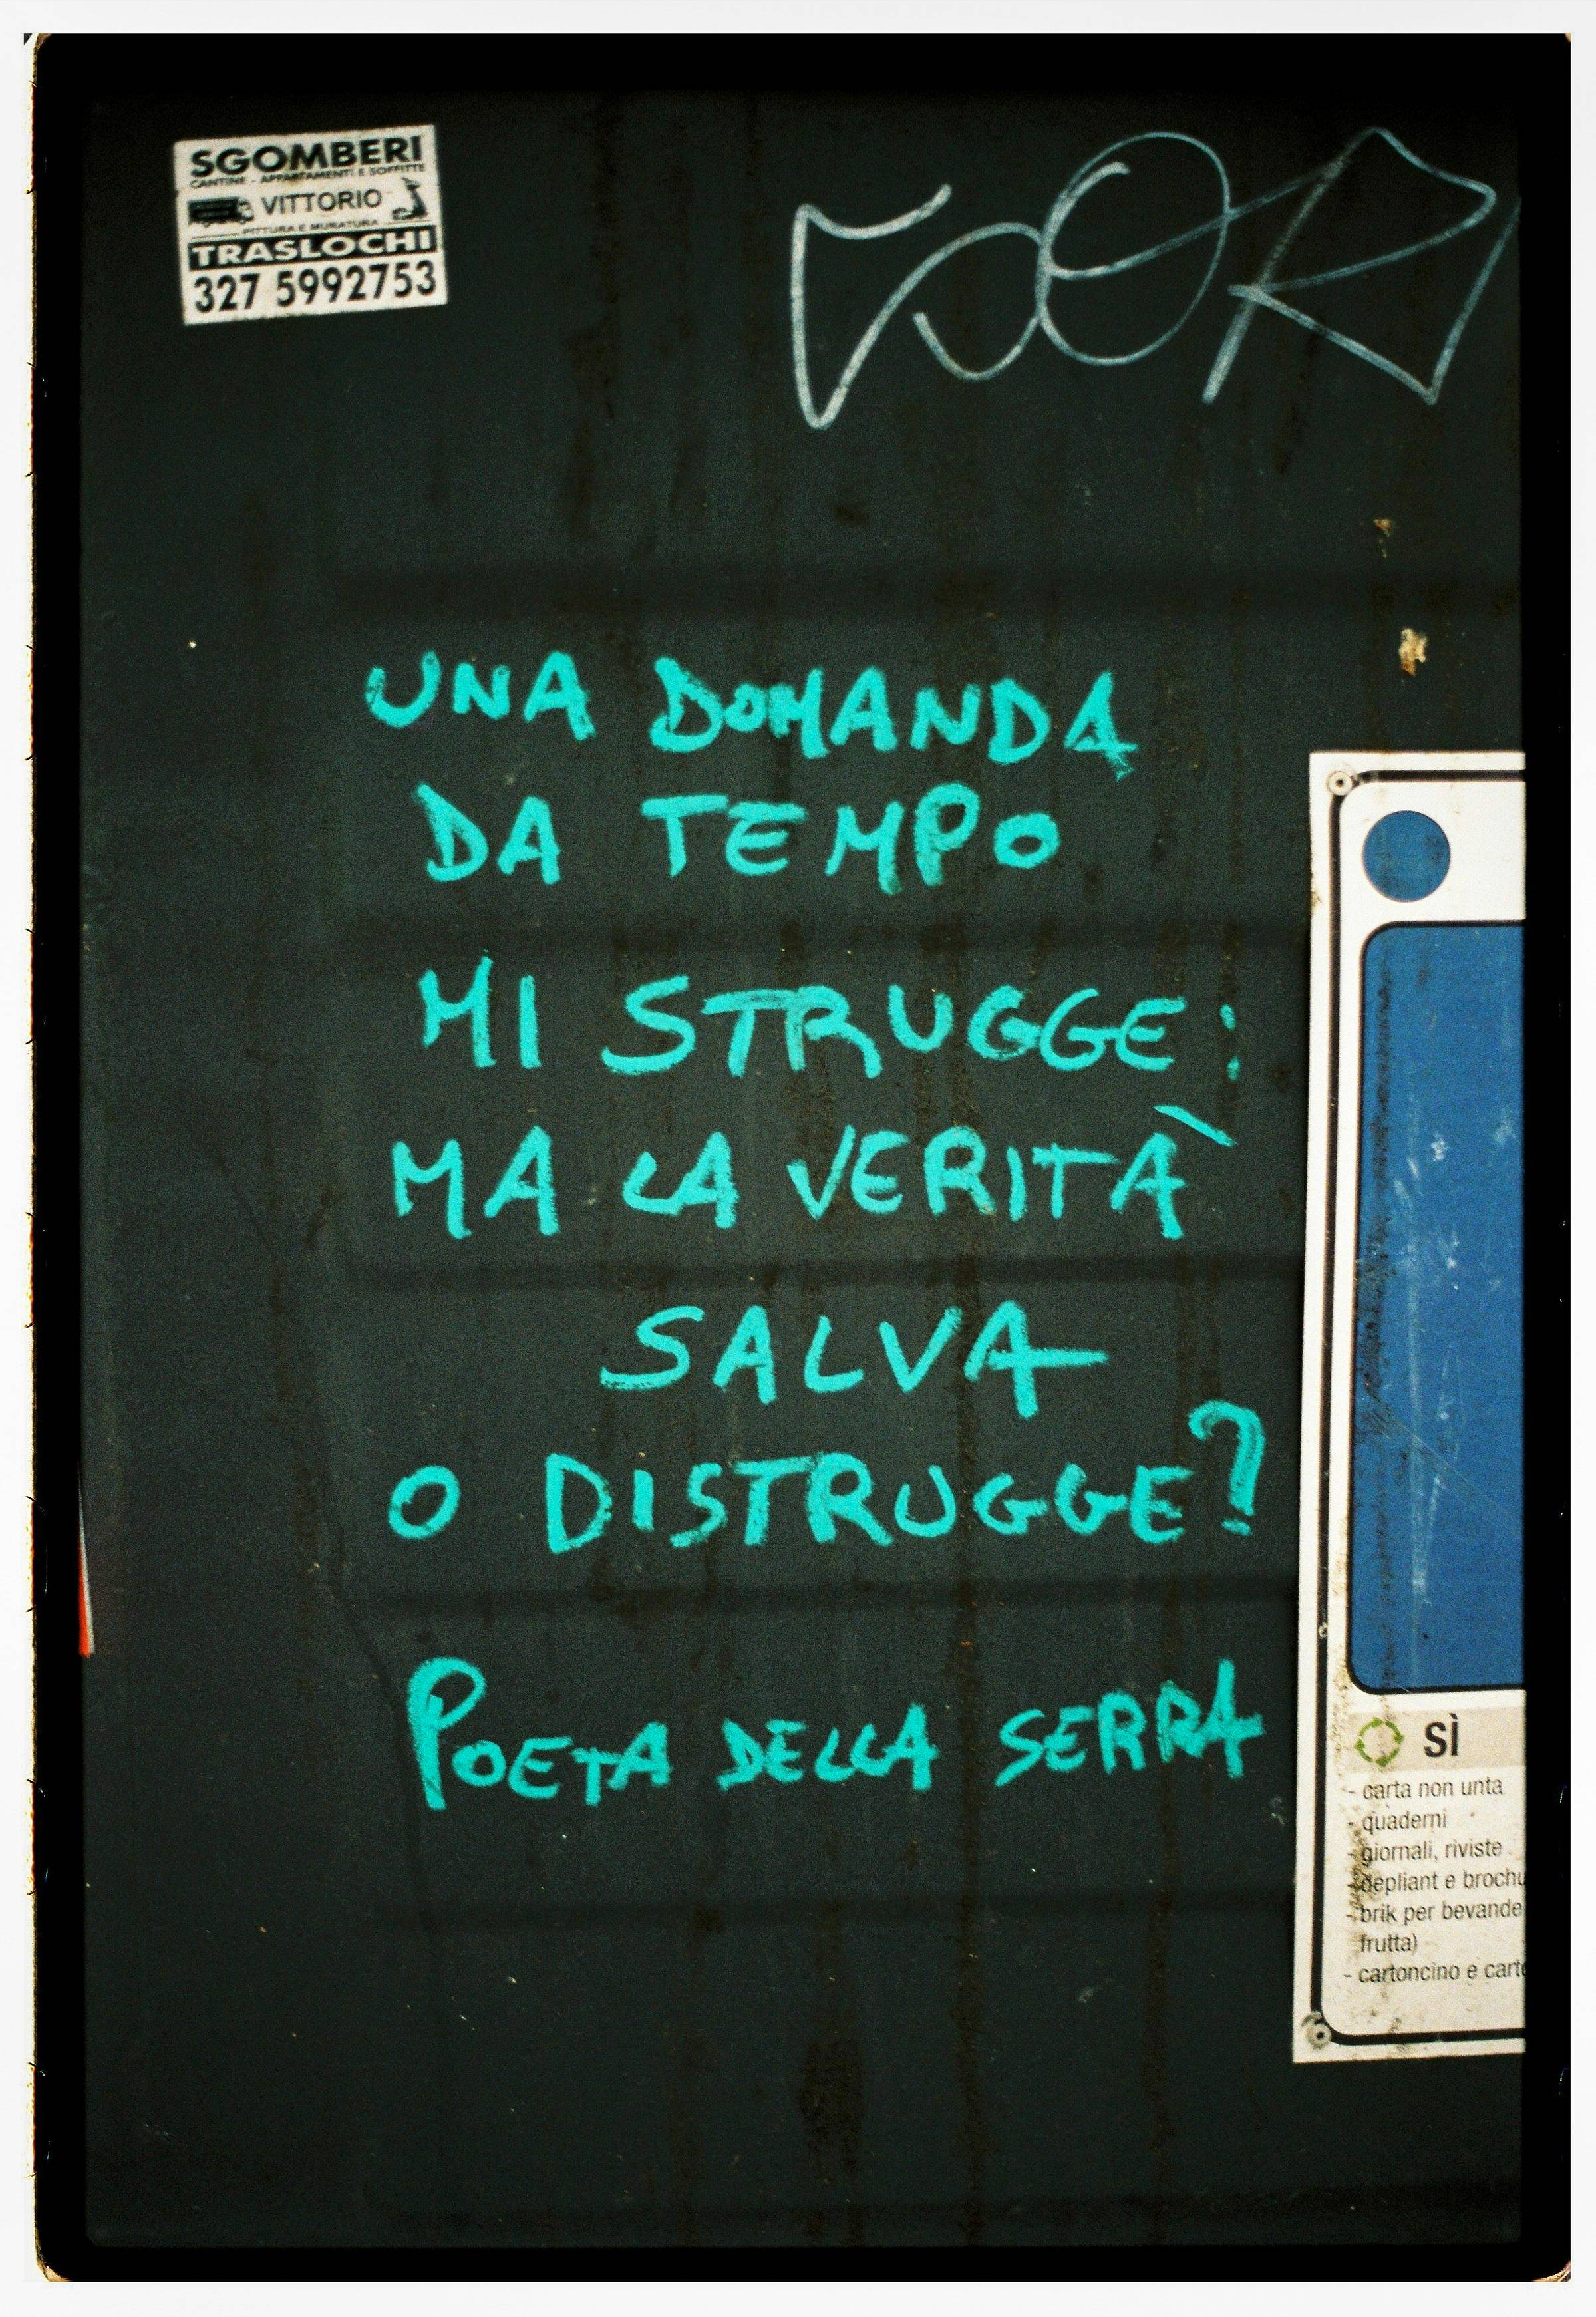 SGOMBERI
CANTINE - APPARTAMENTI E SOFFITTE
VITTORIO
PITTURA E MURATURA
TRASLOCHI
327 5992753
UNA DOMANDA
DA TEMPO
MI STRUGGE:
MA LA VERITÀ
SALVA
O DISTRUGGE?
POETA DELLA SERRA
SÌ
- carta non unta
- quaderni
- giornali, riviste
- depliant e brochu
- brik per bevande
frutta)
- cartoncino e carto